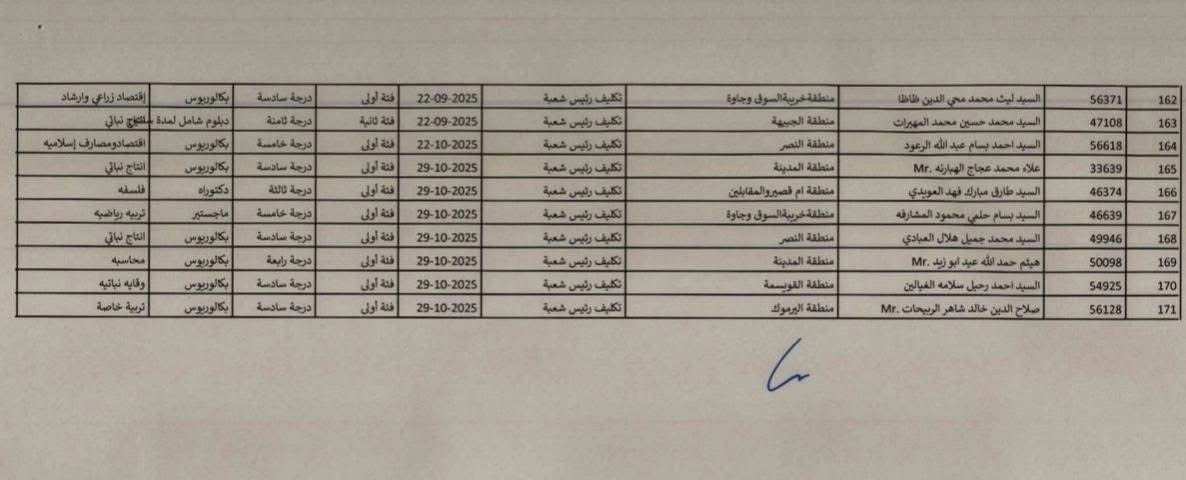 162 56371 السيد ليث محمد محي الدين ظاظا منطقةخريبةالسوق وجاوة تكليف رئيس شعبة 22-09-2025 فئة أولى درجة سادسة بكالوريوس إقتصاد زراعي وارشاد
163 47108 السيد محمد حسين محمد المهيرات منطقة الجبيهة تكليف رئيس شعبة 22-09-2025 فئة ثانية درجة ثامنة دبلوم شامل لمدة نباتي
164 56618 السيد احمد بسام عبد الله الرعود منطقة النصر تكليف رئيس شعبة 22-10-2025 فئة أولى درجة خامسة بكالوريوس اقتصادومصارف إسلاميه
165 33639 علاء محمد عجاج الهبارنه .Mr منطقة المدينة تكليف رئيس شعبة 29-10-2025 فئة أولى درجة سادسة بكالوريوس انتاج نباتي
166 46374 السيد طارق مبارك فهد العويدي منطقة ام قصيروالمقابلين تكليف رئيس شعبة 29-10-2025 فئة أولى درجة ثالثة دكتوراه فلسفه
167 46639 السيد بسام حلمي محمود المشارفه منطقةخريبةالسوق وجاوة تكليف رئيس شعبة 29-10-2025 فئة أولى درجة خامسة ماجستير تربيه رياضيه
168 49946 السيد محمد جميل هلال العبادي منطقة النصر تكليف رئيس شعبة 29-10-2025 فئة أولى درجة سادسة بكالوريوس انتاج نباتي
169 50098 هيثم حمد الله عيد ابو زيد .Mr منطقة المدينة تكليف رئيس شعبة 29-10-2025 فئة أولى درجة رابعة بكالوريوس محاسبه
170 54925 السيد احمد رحيل سلامه الغيالين منطقة القويسمة تكليف رئيس شعبة 29-10-2025 فئة أولى درجة سادسة بكالوريوس وقايه نباتيه
171 56128 صلاح الدين خالد شاهر الربيحات .Mr منطقة اليرموك تكليف رئيس شعبة 29-10-2025 فئة أولى درجة سادسة بكالوريوس تربية خاصة